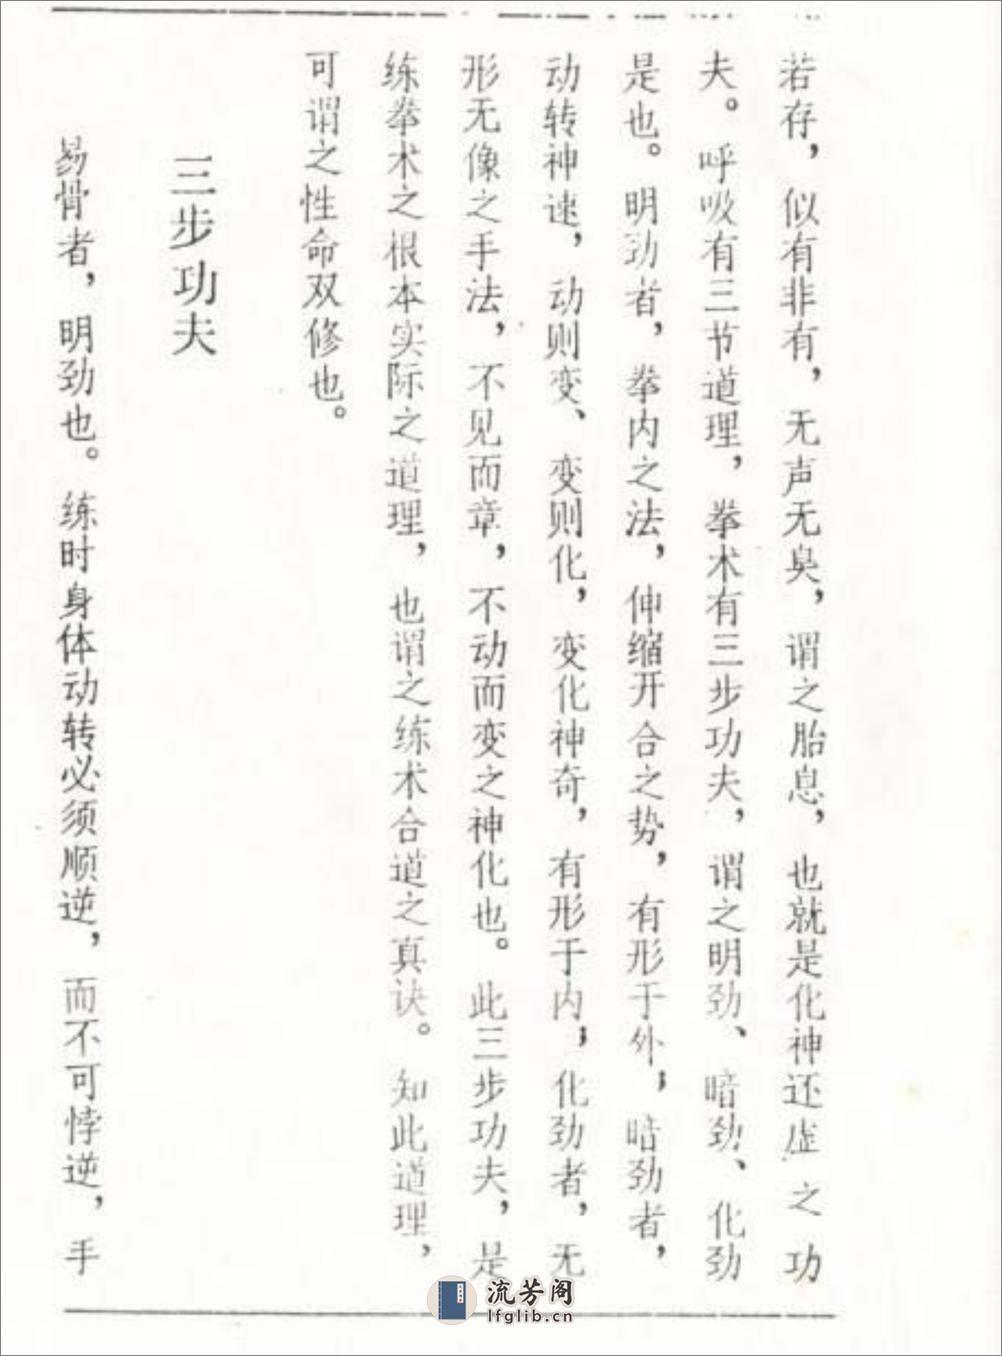 若存，似有非有，无声无臭，谓之胎息，也就是化神还虚之功
夫。呼吸有三节道理，拳术有三步功夫，谓之明劲、暗劲、化劲
是也。明劲者，拳内之法，伸缩开合之势，有形于外，暗劲者，
动转神速，动则变、变则化，变化神奇，有形于内，化劲者，无
形无像之手法，不见而章，不动而变之神化也。此三步功夫，是
练拳术之根本实际之道理，也谓之练术合道之真诀。知此道理，
可谓之性命双修也。
三步功夫
易骨者，明劲也。练时身体动转必须顺逆，而不可悖逆，手
流芳阁
lfglib.cn